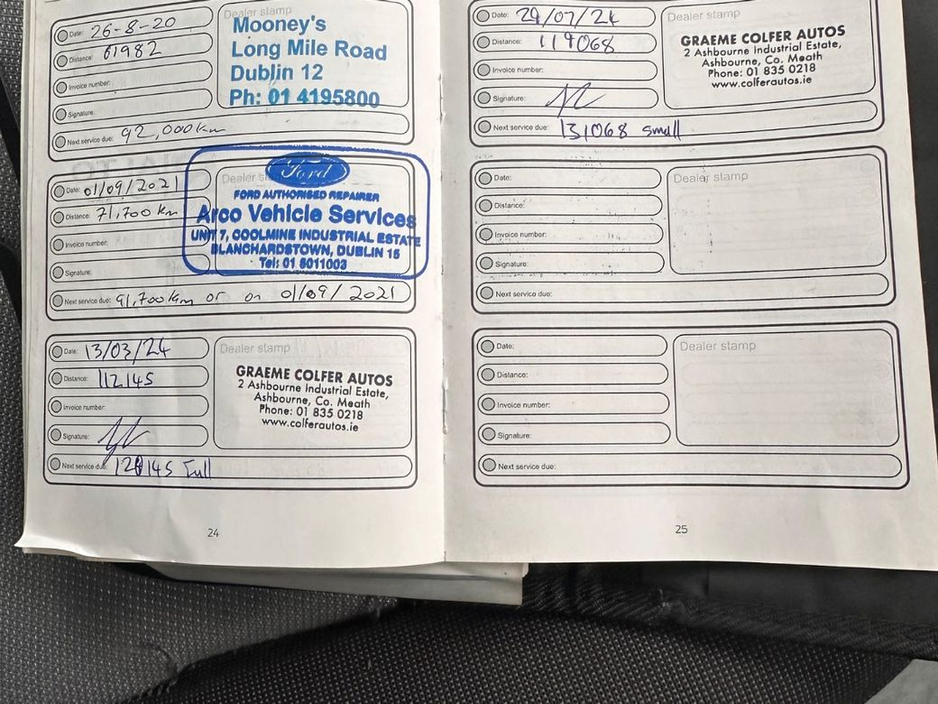 Date: 26-8-20
Distance: 61982
Invoice number:
Signature:
Next service due: 92,000km
Dealer stamp
Mooney's
Long Mile Road
Dublin 12
Ph: 01 4195800
Date: 01/09/2021
Distance: 71,700 km
Invoice number:
Signature:
Next service due: 91,700 km or on 01/09/2021
Dealer
Ford
FORD AUTHORISED REPAIRER
Arco Vehicle Services
UNIT 7, COOLMINE INDUSTRIAL ESTATE
BLANCHARDSTOWN, DUBLIN 15
Tel: 01 8011003
Date: 13/03/24
Distance: 112145
Invoice number:
Signature:
Next service due: 145 full
Dealer stamp
GRAEME COLFER AUTOS
2 Ashbourne Industrial Estate,
Ashbourne, Co. Meath
Phone: 01 835 0218
www.colferautos.ie
24
Date: 29/07/24
Distance: 119068
Invoice number:
Signature:
Next service due: 131068 small
Dealer stamp
GRAEME COLFER AUTOS
2 Ashbourne Industrial Estate,
Ashbourne, Co. Meath
Phone: 01 835 0218
www.colferautos.ie
Date:
Distance:
Invoice number:
Signature:
Next service due:
Dealer stamp
Date:
Distance:
Invoice number:
Signature:
Next service due:
Dealer stamp
25